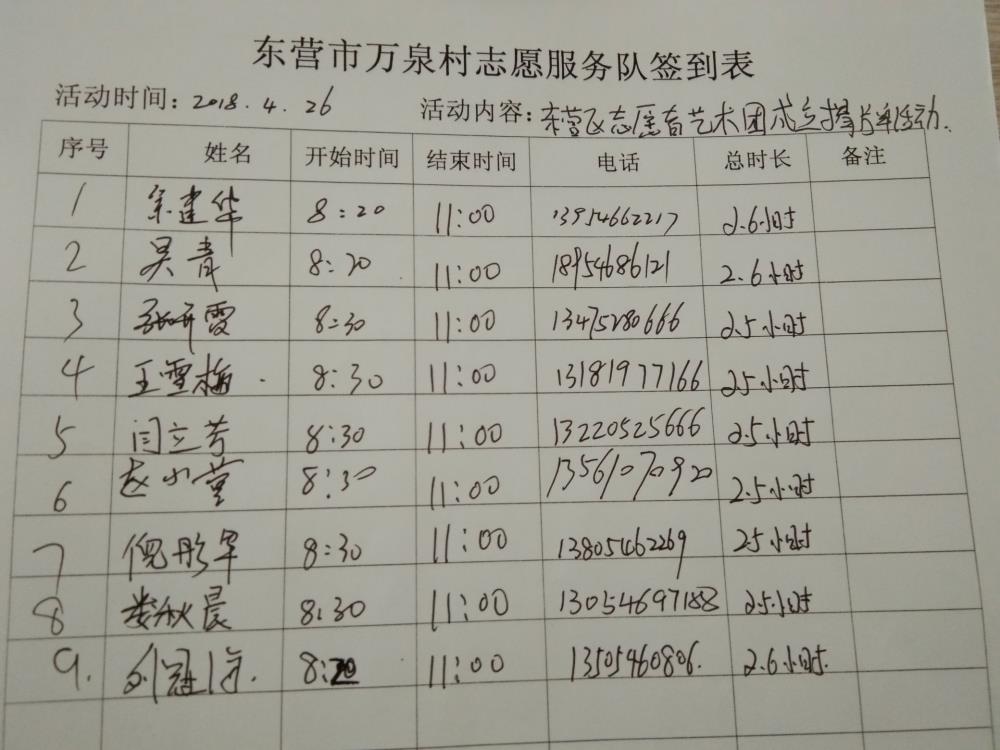 东营市万泉村志愿服务队签到表
活动时间：2018.4.26 活动内容：东营区志愿者艺术团成立揭牌活动.
序号 姓名 开始时间 结束时间 电话 总时长 备注
1 建华 8:20 11:00 13954662217 2.6小时
2 吴青 8:20 11:00 18954686121 2.6小时
3 张研霞 8:30 11:00 13475280666 2.5小时
4 王雪梅 8:30 11:00 13181977166 25小时
5 闫立芳 8:30 11:00 13220525666 2.5小时
6 赵小萱 8:30 11:00 13561070920 2.5小时
7 倪彤军 8:30 11:00 13805462269 25小时
8 娄秋晨 8:30 11:00 13054697188 2.5小时
9. 刘冠 8:20 11:00 13505460806. 2.6小时.